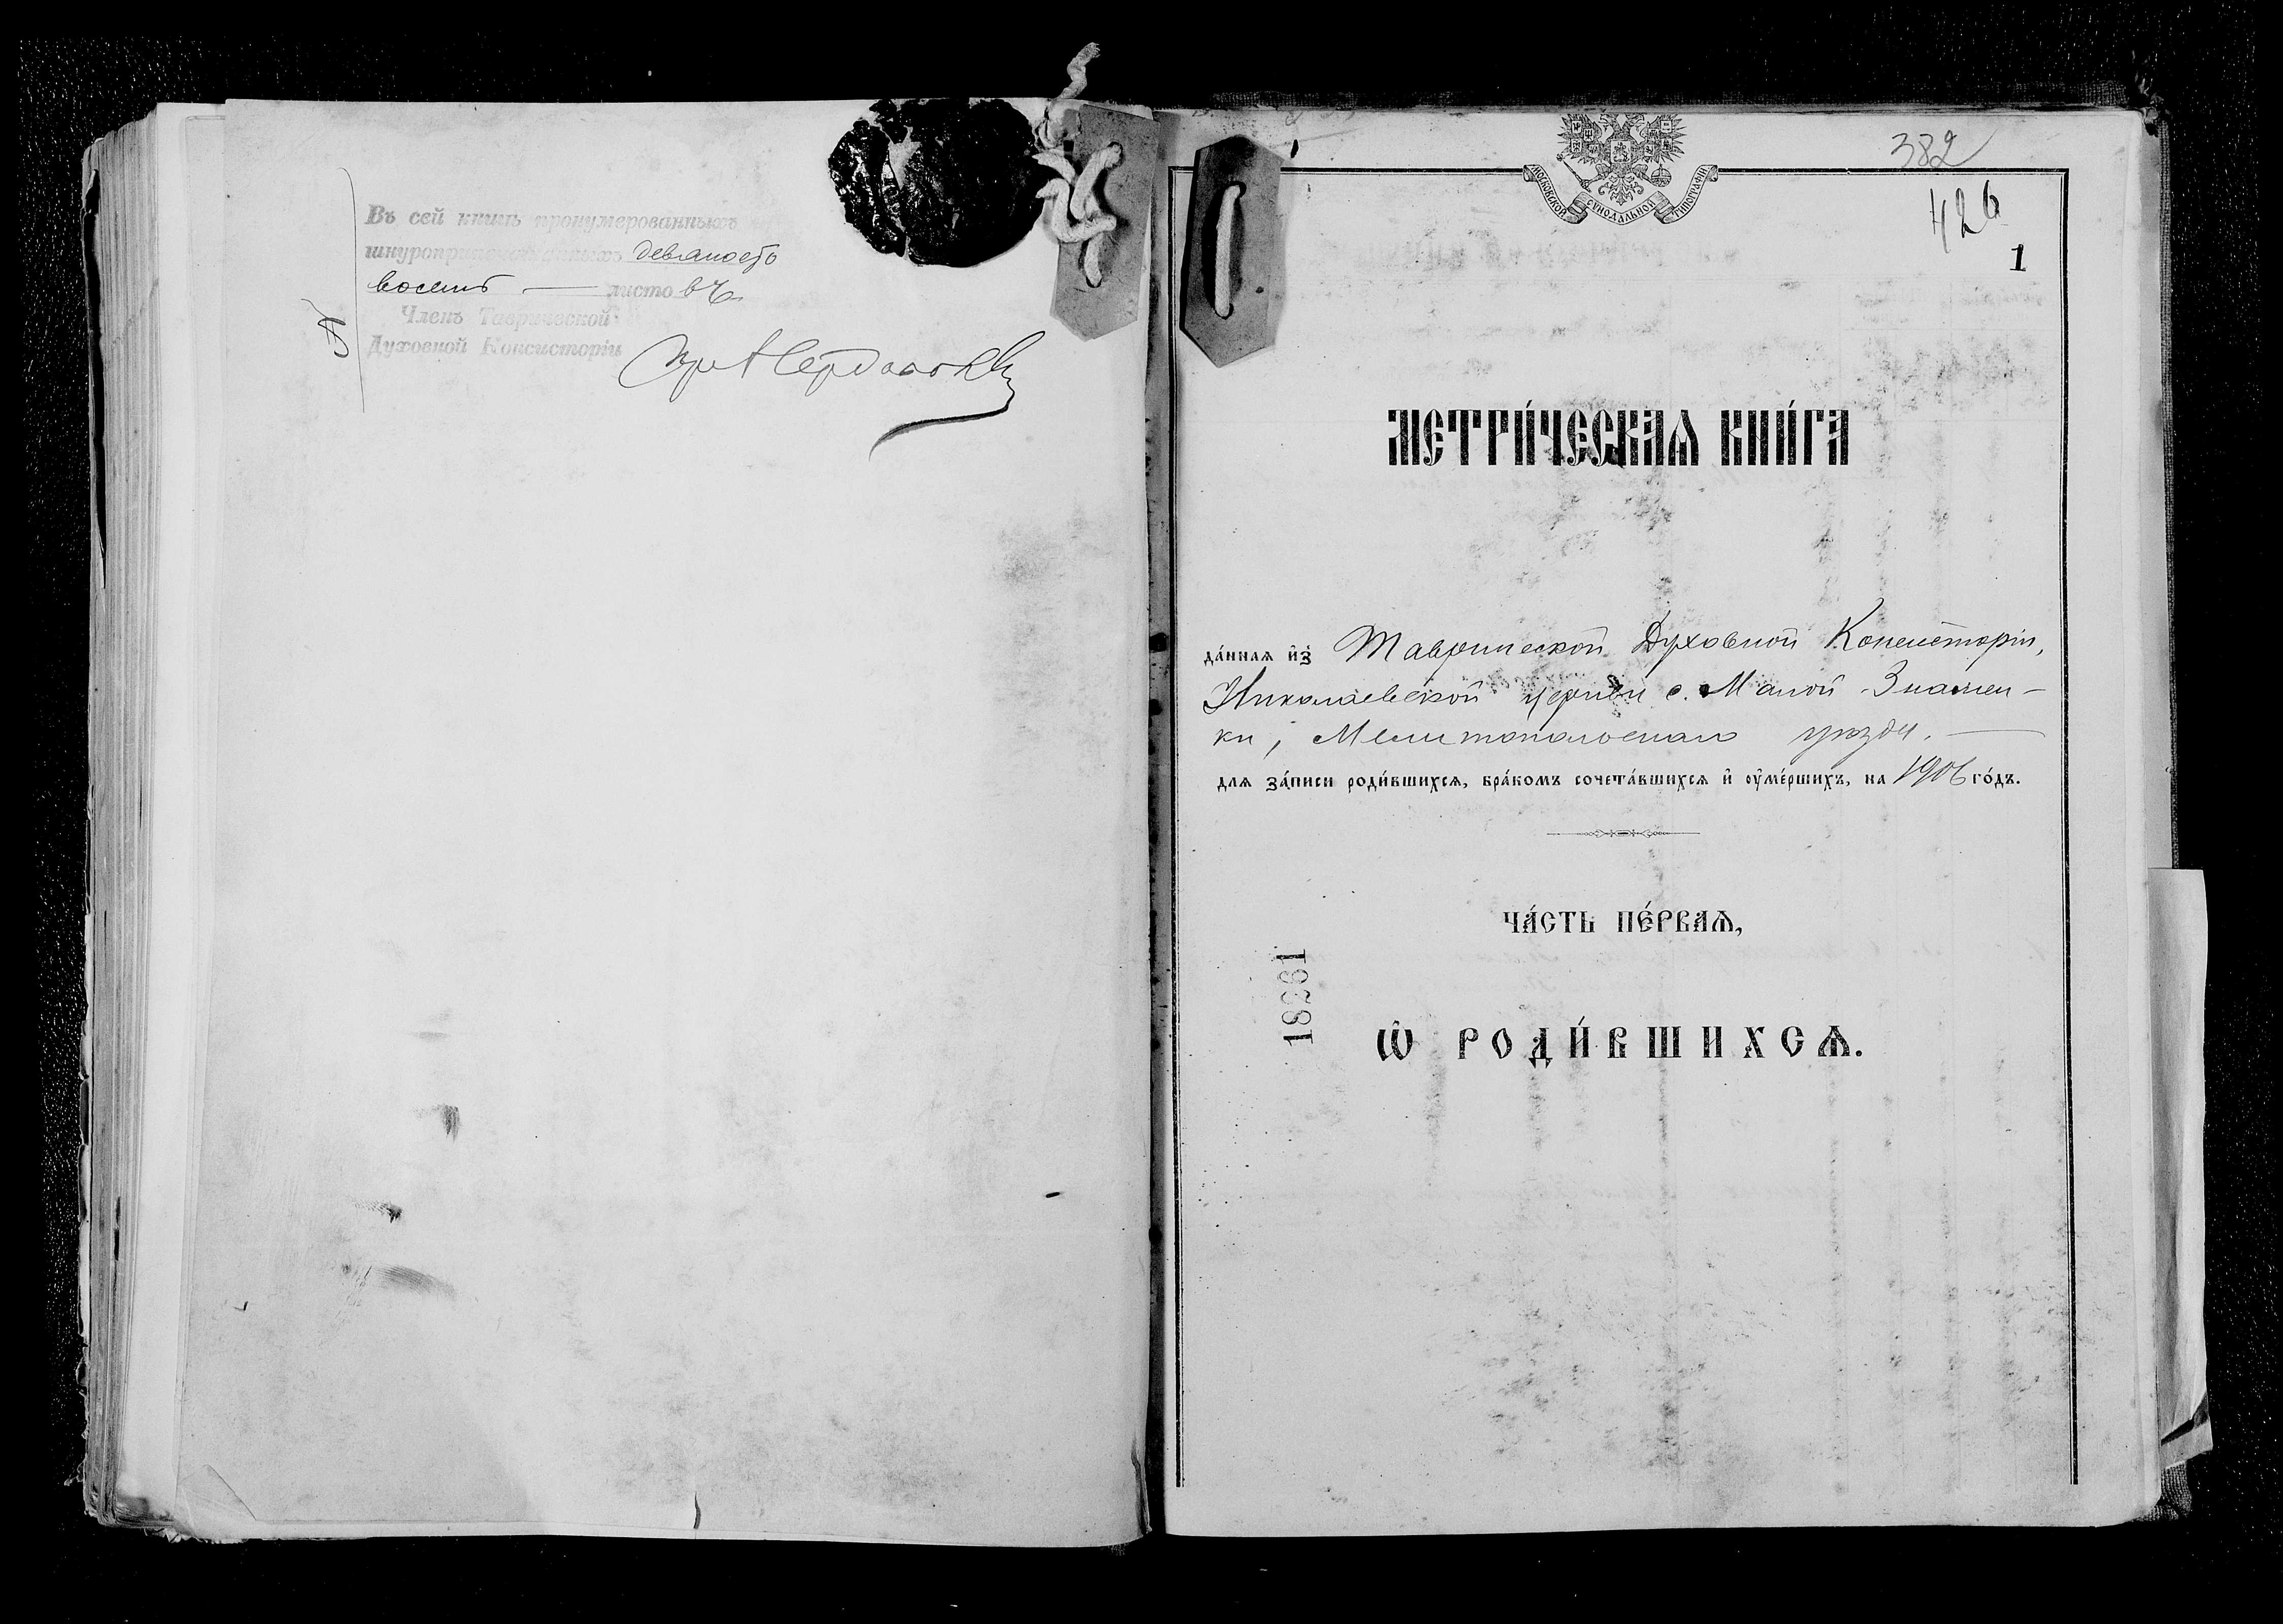 Въ сей книгѣ пронумерованныхъ
шнуроприпечатанныхъ девяносто
восемь — листовъ
Членъ Таврической
Духовной Консисторіи
МОСКОВСКОЙ СѴНОДАЛЬНОЙ ТИПОГРАФІИ
382
426
1
МЕТРИ́ЧЕСКАѦ КНИ́ГА
да́ннаѧ и҆з̾ Таврической Духовной Консисторіи,
Николаевской церкви с. Малой-Знамен-
ки, Мелитопольскаго уѣзда. —
длѧ за́писи роди́вшихсѧ, бра́комъ сочета́вшихсѧ и҆ ѹ҆ме́ршихъ, на 1906 го́дъ.
ЧА́СТЬ ПЕ́РВАѦ,
18361
Ѽ РОДИ́ВШИХСѦ.